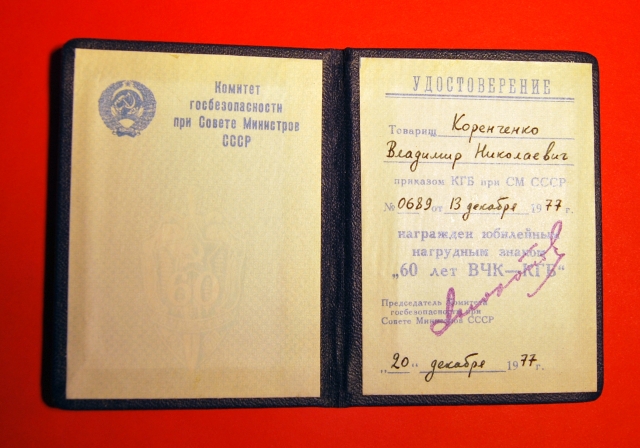 Комитет
госбезопасности
при Совете Министров
СССР
УДОСТОВЕРЕНИЕ
Товарищ Коренченко
Владимир Николаевич
приказом КГБ при СМ СССР
№ 0689 от 13 декабря 1977 г.
награжден юбилейным
нагрудным знаком
„60 лет ВЧК—КГБ“
Председатель Комитета
госбезопасности при
Совете Министров СССР
„20“ декабря 1977 г.